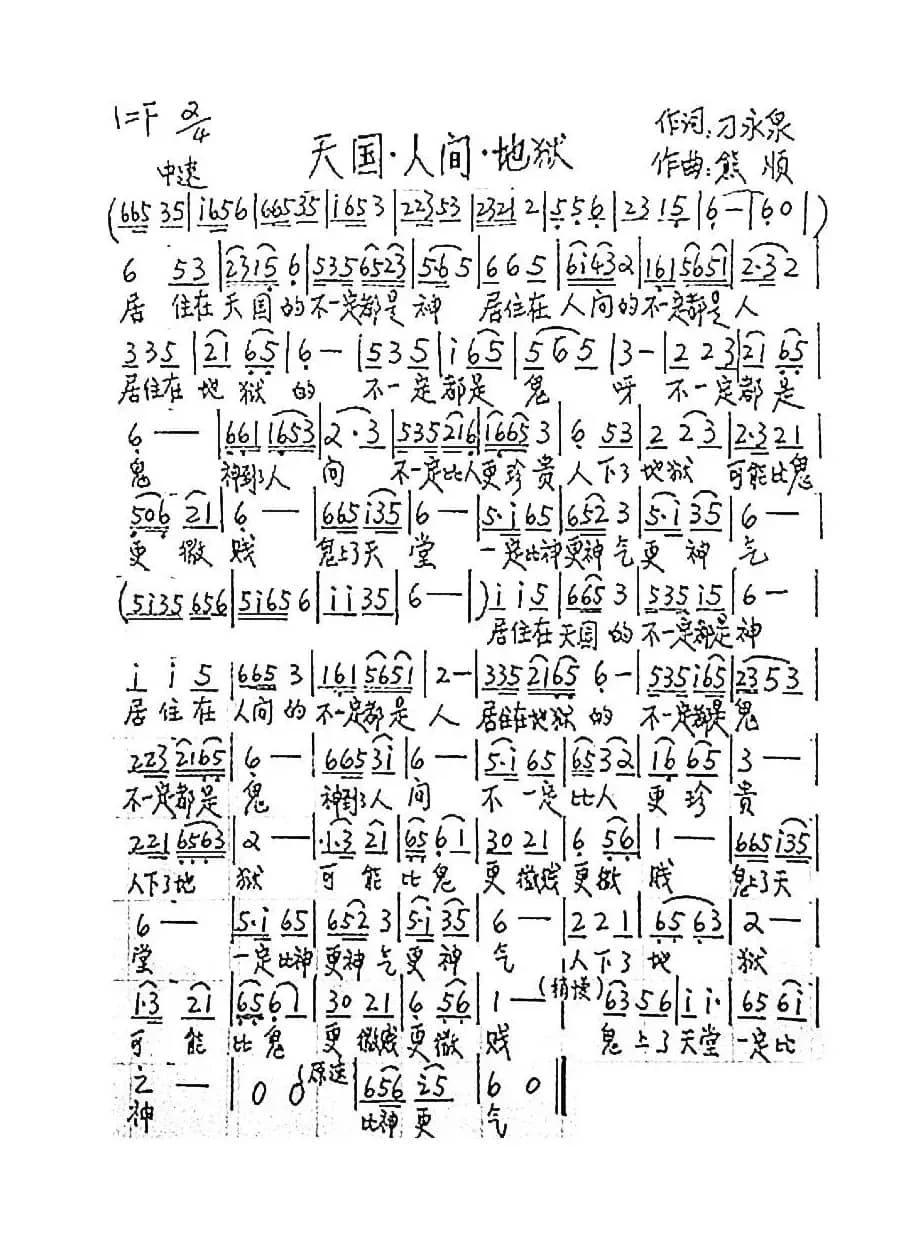 1=F 2/4
天国·人间·地狱
作词:刁永泉
作曲:熊 顺
中速
(665 35|i656|665 35|i653|223 53|2321 2|5 5 6|23 15|6 —|6 0|)
6 53|2315 6|535 6523|5·6 5|6 6 5|6i43 2|161 5651|2·3 2|
居 住在 天国 的 不一定都是 神 居住在 人间的 不一定都是 人
3 3 5|21 65|6 —|5 3 5|i 65|5 6 5|3 —|2 2 3|21 65|
居住在 地狱 的 不一定都是 鬼 呀 不一定都是
6 —|661 1653|2·3|535 216|1665 3|6 53|2 23|2·3 21|
鬼 神到了人 间 不一定比人更珍贵 人下了 地狱 可能比鬼
506 21|6 —|665 i35|6 —|5·i 65|652 3|5·i 35|6 —|
更 微 贱 鬼上了天 堂 一定比神更神气更 神 气
(5i35 656|5i65 6|i i 35|6 —|)i i 5|665 3|535 i5|6 —|
居住在天国 的 不一定都是神
i i 5|665 3|161 5651|2 —|335 2165|6 —|535 i65|23 53|
居 住 在 人间的 不一定都是 人 居住在地狱 的 不一定都是鬼
223 2165|6 —|665 3i|6 —|5·i 65|65 32|16 65|3 —|
不一定都是 鬼 神到了人 间 不 一定 比人 更 珍 贵
221 6563|2 —|·1·3 21|65 61|30 21|6 56|1 —|665 i35|
人下了地 狱 可 能 比鬼 更 微贱 更微 贱 鬼上了天
6 —|5·i 65|652 3|5·i 35|6 —|2 2 1|65 63|2 —|
堂 一定比神 更神 气 更 神 气 人下了 地 狱
1·3 21|65 61|30 21|6 56|1 —|(稍慢)63 56|i i·|65 6i|
可 能 比鬼 更 微贱 更微 贱 鬼上了天堂 一定比
2 —|0 0|(原速)656 i5|6 0‖
神 比神 更 气